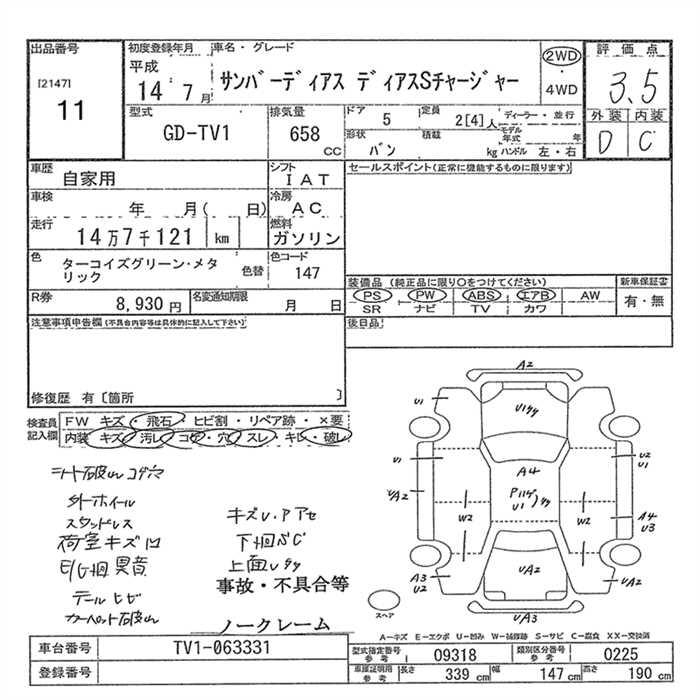 出品番号
[2147]
11
初度登録年月
平成
14・7月
車名・グレード
サンバーディアス ディアスSチャージャー
2WD
・
4WD
評価点
3.5
外装 内装
D C
型式
GD-TV1
排気量
658
CC
ドア
5
定員
2[4]人
ディーラー・並行
形状
バン
積載
kg
モデル年式
年
ハンドル 左・右
車歴
自家用
シフト
IAT
車検
年 月( 日)
冷房
AC
走行
14万7千121 km
燃料
ガソリン
色
ターコイズグリーン・メタリック
色替
色コード
147
R券
8,930円
名変通知期限
月 日
セールスポイント(正常に機能するものに限ります)
装備品 (純正品に限り○をつけてください)
PS PW ABS エアB AW
SR ナビ TV カワ
新車保証書
有・無
後日品
注意事項申告欄(不具合内容等は具体的に記入して下さい)
修復歴 有〔箇所 〕
検査員記入欄
FW キズ・飛石・ヒビ割・リペア跡・×要
内装 キズ・汚レ・コゲ・穴・スレ・キレ・破レ
シート破れ コゲ穴
外ホイール
スタッドレス
荷室キズ凹
E/G廻異音
テールヒビ
カーペット破れ
キズU・Pアセ
下廻SC
上面Uタタ
事故・不具合等
ノークレーム
A2
U1
U1タタ
U1
A4
U2
U1
UA2
W2
W2
A4
U3
A3
U2
UA2
UA2
UA3
スペア
A-キズ E-エクボ U-凹み W-補修跡 S-サビ C-腐食 XX-交換済
車台番号
TV1-063331
登録番号
型式指定番号
参考
09318
類別区分番号
参考
0225
車庫証明用
参考
長さ
339 cm
幅
147 cm
高さ
190 cm